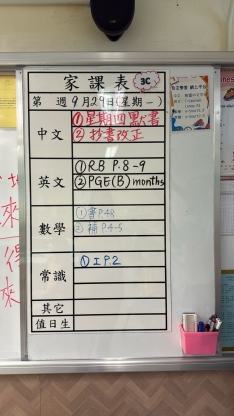 家課表 3C
第 週 9月29日(星期一)
中文
①星期四默書
②抄書改正
英文
①RB P.8-9
②PGE(B) months
數學
①書P.48
②補P.4-5
常識
①I P.2
其它
值日生
來
得
來